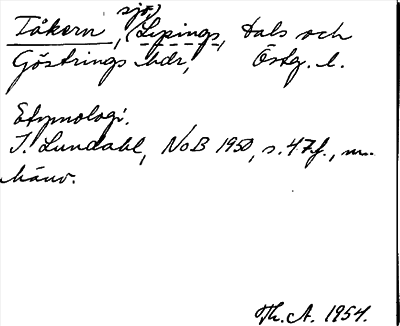 Tåkern, sjö, (Lysings, Dals och
Göstrings hdr, Östg. l.
Etymologi.
I. Lundahl, NoB 1950, s. 47f., m.
hänv.
Th. A. 1954.